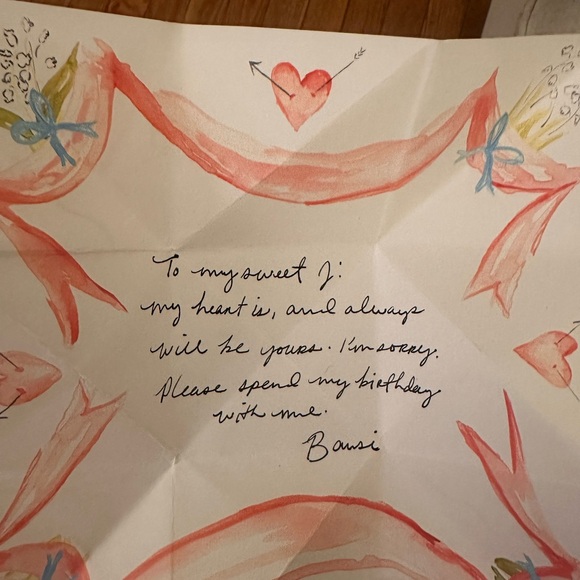 To my sweet J:
my heart is, and always
will be yours. I'm sorry.
Please spend my birthday
with me.
Bansi